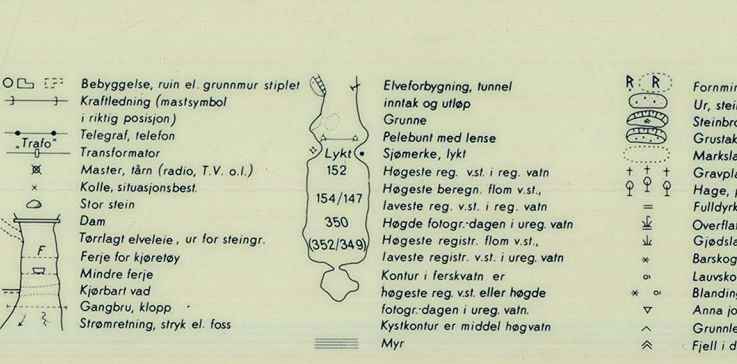 Bebyggelse, ruin el. grunnmur stiplet
Kraftledning (mastsymbol
i riktig posisjon)
Telegraf, telefon
„Trafo"
Transformator
Master, tårn (radio, T.V. o.l.)
Kolle, situasjonsbest.
Stor stein
Dam
Tørrlagt elveleie, ur for steingr.
F
Ferje for kjøretøy
Mindre ferje
Kjørbart vad
Gangbru, klopp
Strømretning, stryk el. foss
Elveforbygning, tunnel
inntak og utløp
Grunne
Pelebunt med lense
Lykt
Sjømerke, lykt
152
Høgeste reg. v.st. i reg. vatn
Høgeste beregn. flom v.st.,
154/147
laveste reg. v.st. i reg. vatn
350
Høgde fotogr.-dagen i ureg. vatn
(352/349)
Høgeste registr. flom v.st.,
laveste registr. v.st. i ureg. vatn
Kontur i ferskvatn er
høgeste reg. v.st. eller høgde
fotogr.-dagen i ureg. vatn.
Kystkontur er middel høgvatn
Myr
R R
Fornmin
Ur, stei
Steinbro
Grustak
Marksla
Gravpla
Hage, p
Fulldyrk
Overflat
Gjødsla
Barskog
Lauvsko
Blanding
Anna jo
Grunnle
Fjell i d